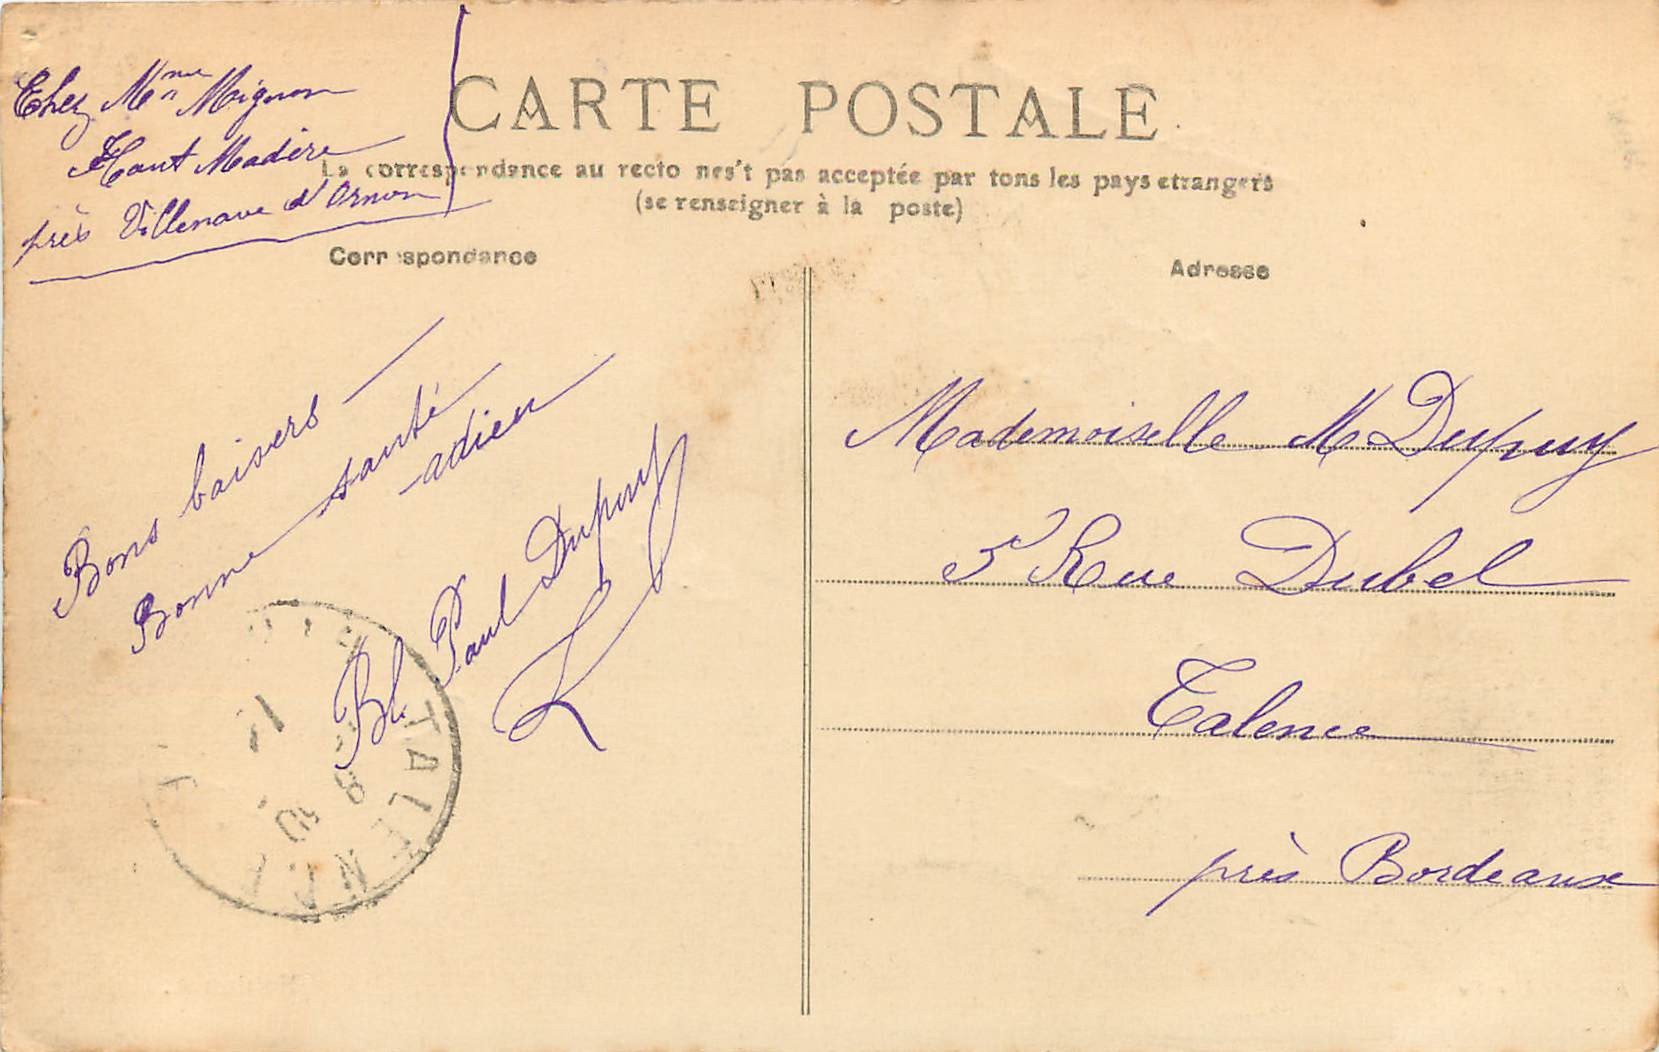 Chez Mme Mignon
Haut Madère
près Villenave d'Ornon
CARTE POSTALE
La correspondance au recto nes't pas acceptée par tons les pays etrangers
(se renseigner à la poste)
Correspondance
Adresse
Bons baisers
Bonne santé
adieu
Bl. Paul Dupuy
Mademoiselle M Dupuy
5 Rue Dubel
Talence
près Bordeaux
TALENCE